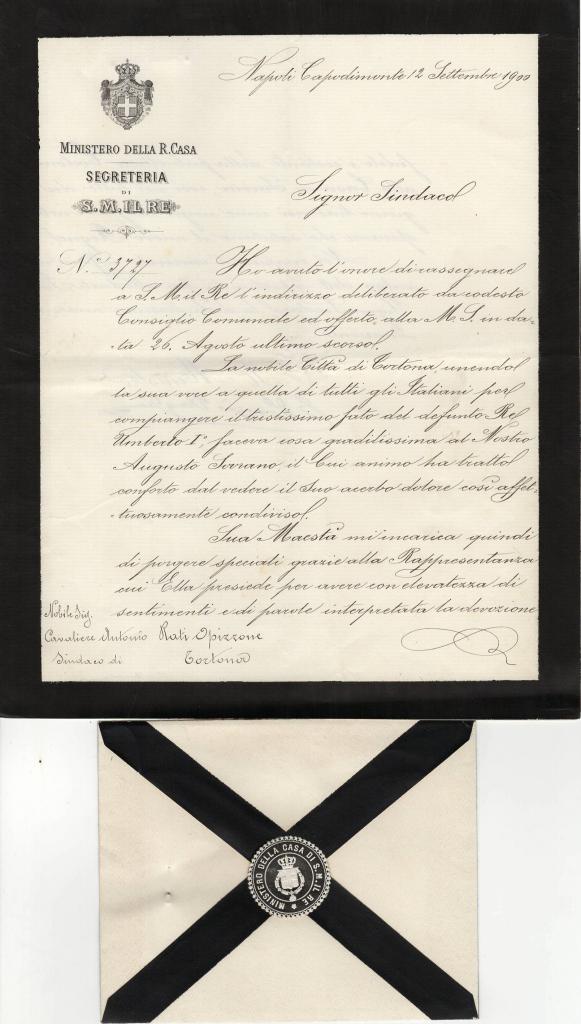 Napoli Capodimonte 12 Settembre 1900
MINISTERO DELLA R. CASA
SEGRETERIA
DI
S. M. IL RE
Signor Sindaco
N.° 3727
Ho avuto l'onore di rassegnare
a S. M. il Re l'indirizzo deliberato da codesto
Consiglio Comunale ed offerto alla M. S. in da-
ta 26. Agosto ultimo scorso.
La nobile Città di Tortona, unendo
la sua voce a quella di tutti gli Italiani per
compiangere il tristissimo fato del defunto Re
Umberto I°, faceva cosa graditissima al Nostro
Augusto Sovrano, il Cui animo ha tratto
conforto dal vedere il Suo acerbo dolore così affet-
tuosamente condiviso.
Sua Maestà mi incarica quindi
di porgere speciali grazie alla Rappresentanza
cui Ella presiede per avere con elevatezza di
sentimenti e di parole interpretata la devozione
Nobile Sig.
Cavaliere Antonio Rati Opizzone
Sindaco di Tortona
MINISTERO DELLA CASA DI S. M. IL RE